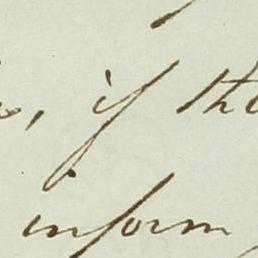 , if the
inform